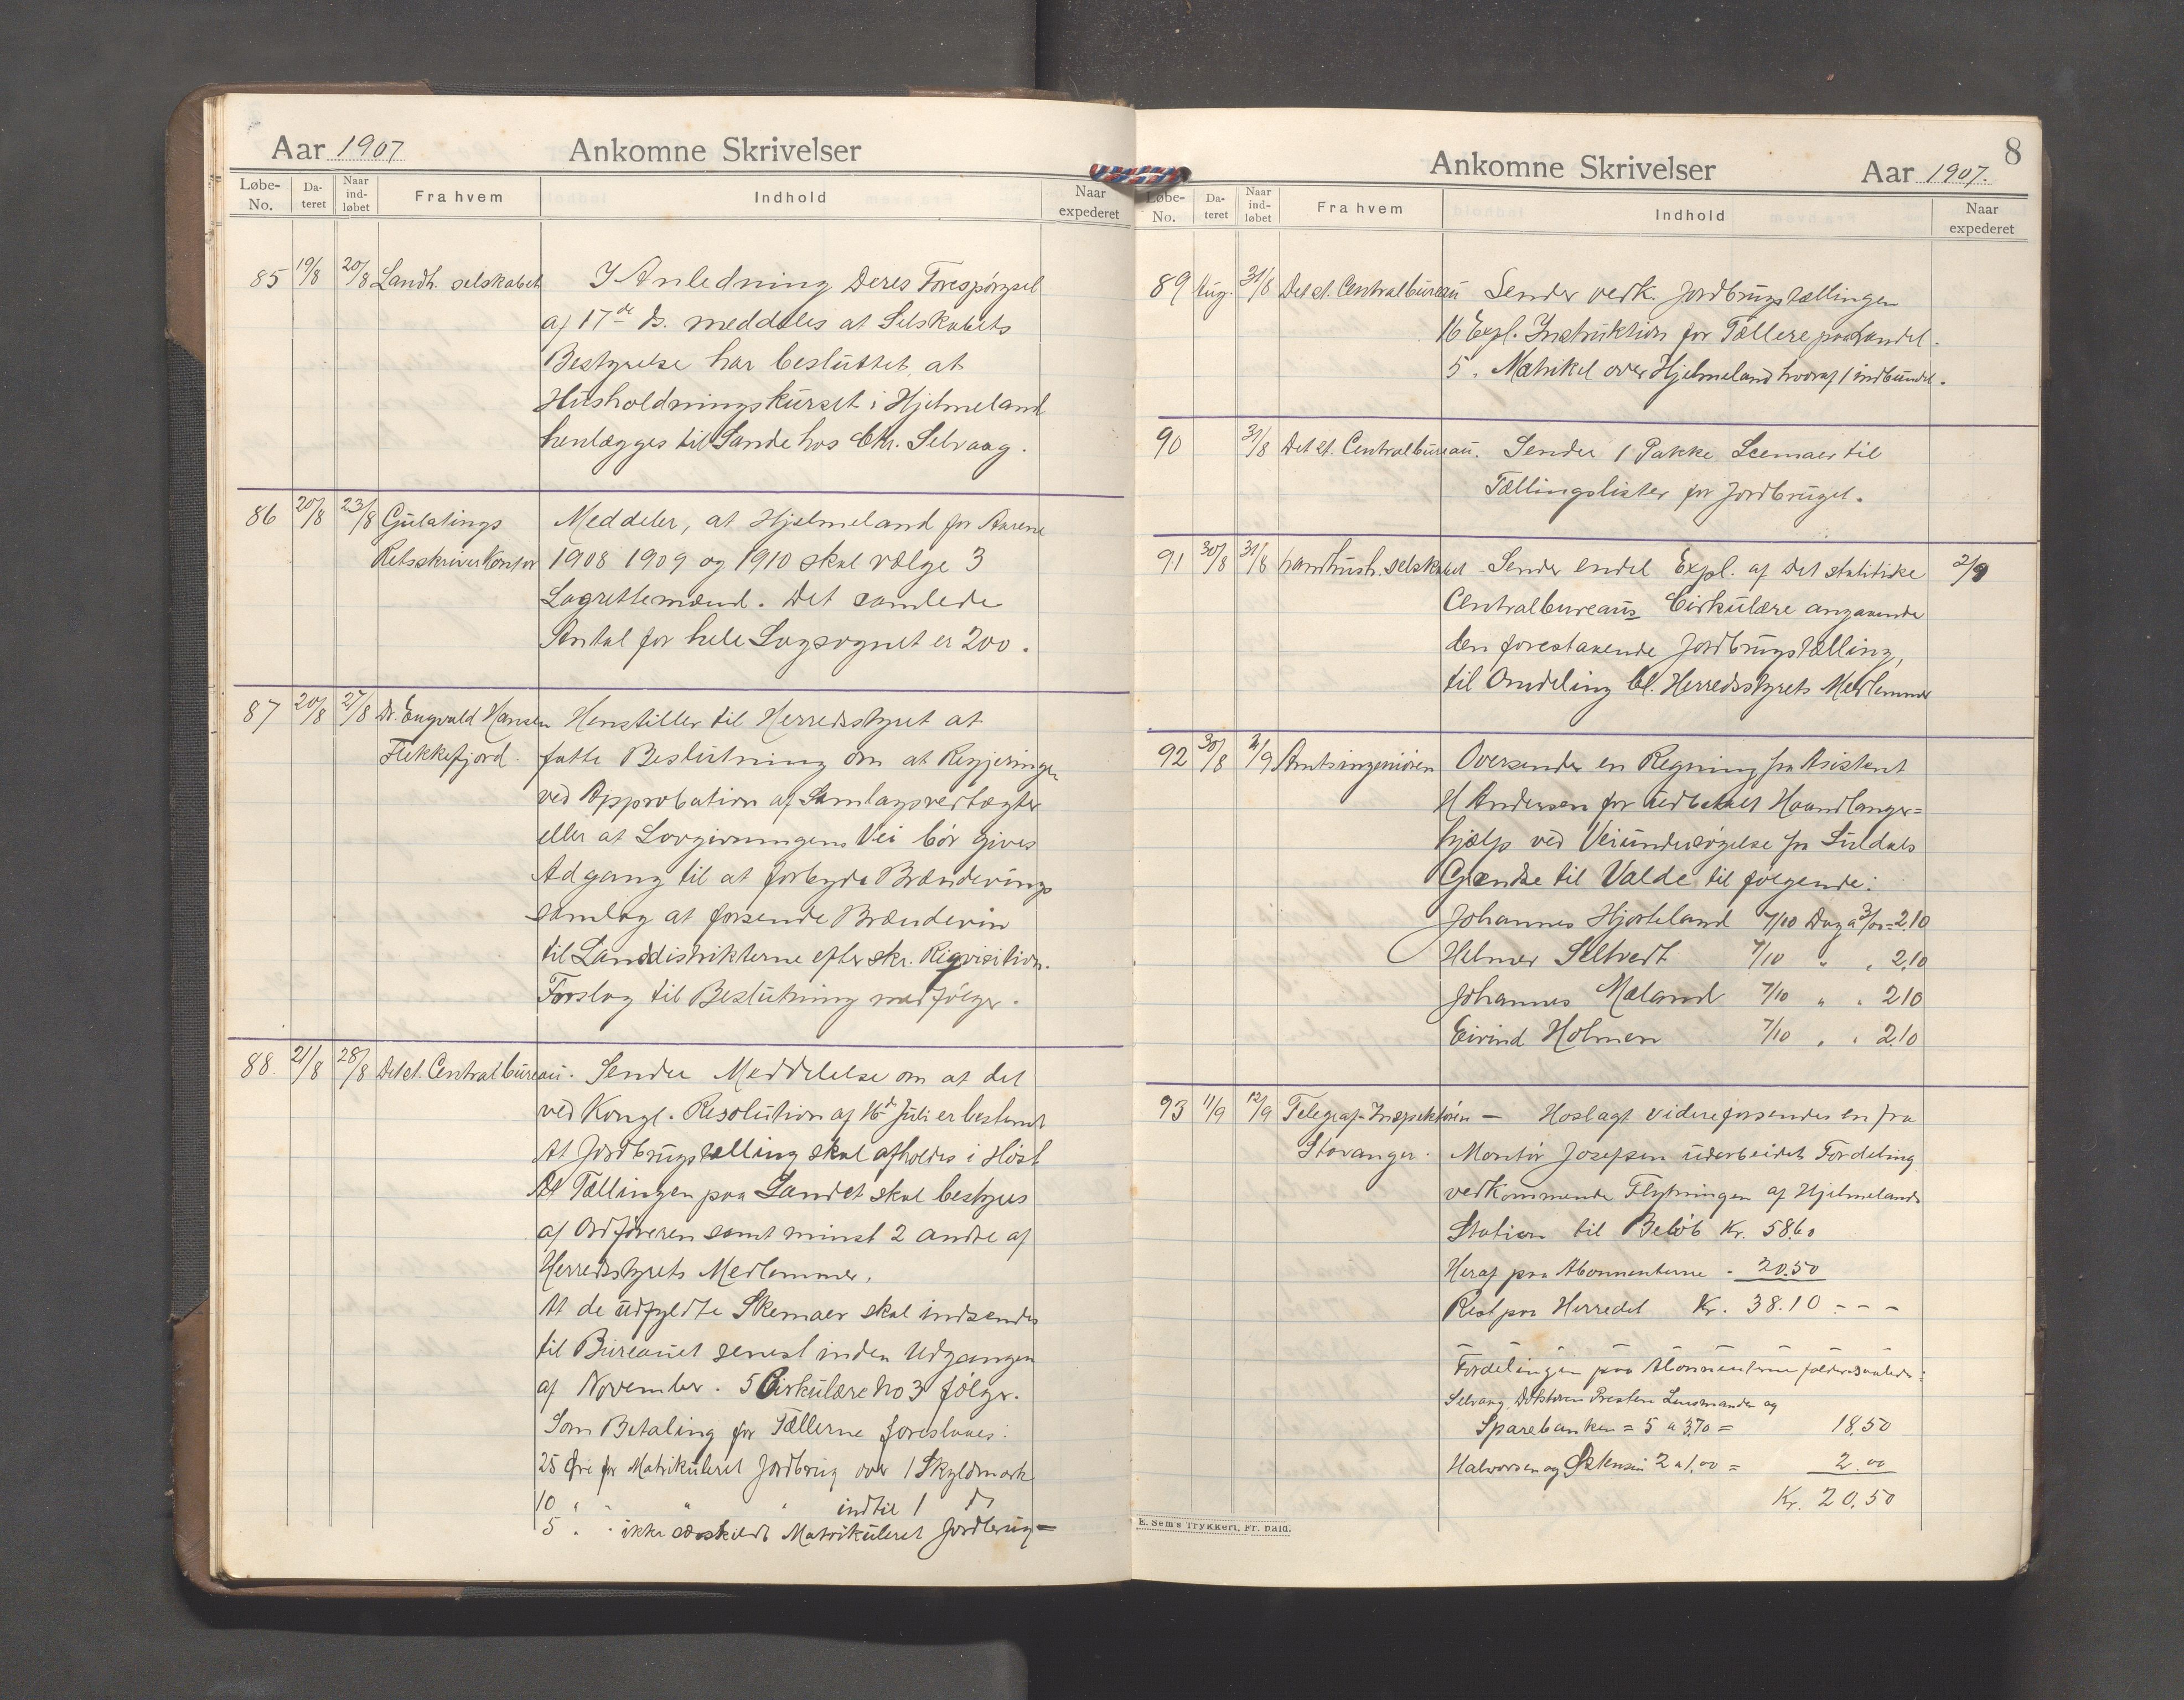 Aar 1907 Ankomne Skrivelser
Løbe-No. Da-teret Naar ind-løbet Fra hvem Indhold Naar expederet
85 19/8 20/8 Landh. selskabet I Anledning Deres Forespørgsel
af 17de ds. meddeles at Selskabets
Bestyrelse har besluttet, at
Husholdningskurset i Hjelmeland
henlægges til Sande hos Chr. Selvaag.
86 20/8 23/8 Gulatings Meddeler, at Hjelmeland for Aarene
Retsskriverkontor 1908 1909 og 1910 skal vælge 3
Lagrettemænd. Det samlede
Antal for hele Lagsognet er 200.
87 20/8 27/8 Dr. Engvald Hansen Henstiller til Herredsstyret at
Flekkefjord. fatte Beslutning om at Regjeringen
ved Approbation af Samlagsvedtægter
eller at Lovgivningens Vei bør gives
Adgang til at forbyde Brændevins
samlag at forsende Brændevin
til Landdistrikterne efter skr. Rigvisition.
Forslag til Beslutning medfølger.
88. 21/8 28/8 Det st. Centralbureau. Sender Meddelelse om at det
ved Kongl. Resolution af 16d Juli er bestemt
At Jordbrugstælling skal afholdes i Høst
At Tællingen paa Landet skal bestyres
af Ordføreren samt minst 2 andre af
Herredsstyrets Medlemmer.
At de udfyldte Skemaer skal indsendes
til Bureauet senest inden Udgangen
af November. 5 Cirkulære No 3 følger.
Som Betaling for Tællerne foreslaaes:
25 Øre for Matrikuleret Jordbrug over 1 Skyldmark
10 " " " " indtil 1 Do
5 " " ikke særskildt Matrikuleret Jordbrug =
8
Ankomne Skrivelser Aar 1907.
Løbe-No. Da-teret Naar ind-løbet Fra hvem Indhold Naar expederet
89 Aug. 31/8 Det st. Centralbureau Sender vedk. Jordbrugstællingen
16 Expl. Instruktion for Tællere paa Landet.
5 " Matrikel over Hjelmeland hvoraf 1 indbundet.
90 31/8 Det st. Centralbureau. Sender 1 Pakke Scemaer til
Tællingslister for Jordbruget.
91 30/8 31/8 Landhush. selskabet Sender endel Expl. af Det statitiske 2/9
Centralbureaus Cirkulære angaaende
den forestaaende Jordbrugstælling,
til Omdeling bl. Herredsstyrets Medlemmer
92 30/8 2/9 Amtsingeniøren Oversender en Regning fra Asistent
H Andersen for udbetalt Haandlanger=
hjælp ved Veiundersøgelse fra Suldals
Grændse til Valde til følgende:
Johannes Hjorteland 7/10 Dag à 3/00 = 2.10
Helmer Seltvedt 7/10 " " 2.10
Johannes Mæland 7/10 " " 2.10
Eivind Holmen 7/10 " " 2.10
93 11/9 12/9 Telegraf-Inspektøren — Hoslagt videreforsendes en fra
Stavanger. Montør Josefsen udarbeidet Fordeling
vedkommende Flytningen af Hjelmelands
Station til Beløb Kr. 58.60
Heraf paa Abonnenterne " 20.50
Rest paa Herredet Kr. 38.10 - - -
Fordelingen paa Abonnenterne falder saaledes:
Selvaag, Doktoren Presten Lensmanden og
Sparebanken = 5 a 3.70 = 18.50
Halvorsen og 2 a 1.00 = 2.00
Kr. 20.50
E. Sem's Trykkeri, Fr. hald.